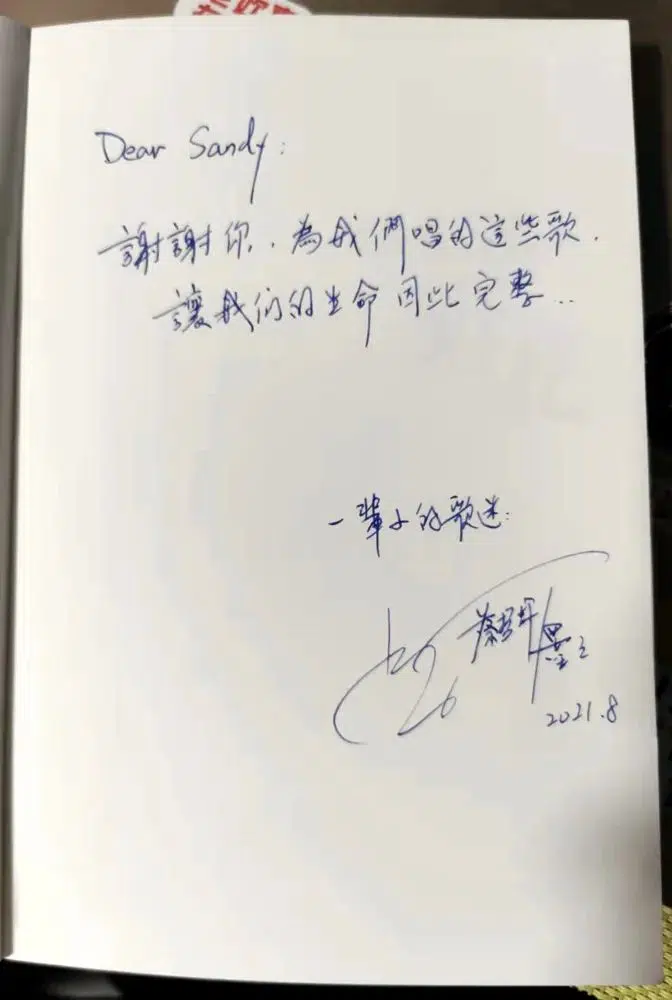 Dear Sandy:
謝謝你.為我們唱的這些歌.
讓我们的生命因此完整..
一輩子的歌迷:
2021.8